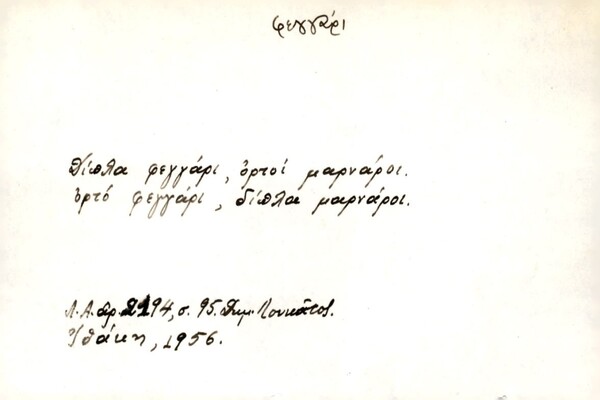 φεγγάρι
Δίπλα φεγγάρι, ὀρτοί μαρνάροι.
ὀρτό φεγγάρι, δίπλα μαρνάροι.
Λ.Α. ἀρ. 2194, σ. 95. Δημ. Λουκᾶτος.
Ἰθάκη, 1956.